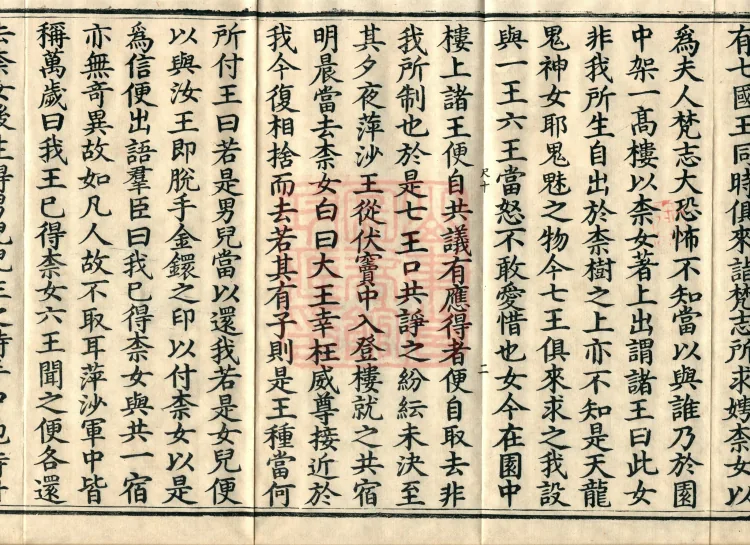 有七國王同時俱來詣梵志所求娉柰女以
為夫人梵志大恐怖不知當以與誰乃於園
中架一高樓以柰女著上出謂諸王曰此女
非我所生自出於柰樹之上亦不知是天龍
鬼神女耶鬼魅之物今七王俱來求之我設
與一王六王當怒不敢愛惜也女今在園中
樓上諸王便自共議有應得者便自取去非
我所制也於是七王口共諍之紛紜未決至
其夕夜蓱沙王從伏竇中入登樓就之共宿
明晨當去柰女白曰大王幸枉威尊接近於
我今復相捨而去若其有子則是王種當何
所付王曰若是男兒當以還我若是女兒便
以與汝王即脫手金鐶之印以付柰女以是
為信便出語羣臣曰我已得柰女與共一宿
亦無奇異故如凡人故不取耳蓱沙軍中皆
稱萬歲曰我王已得柰女六王聞之便各還
去柰女後生得男兒
二